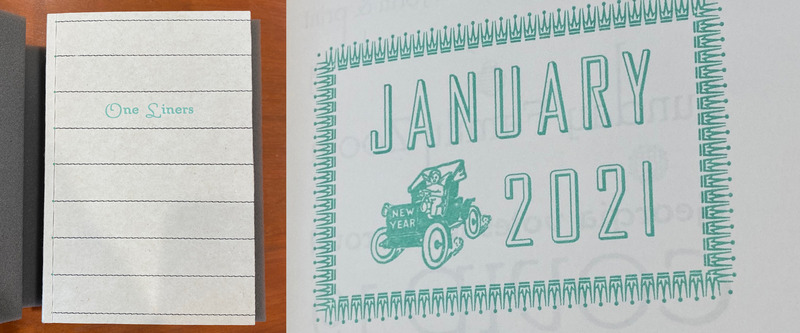 One Liners
JANUARY
NEW
YEAR
2021